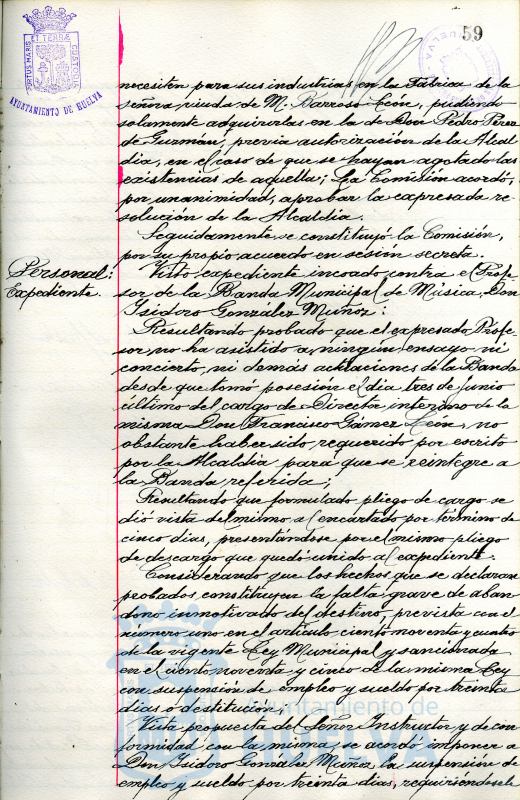 59
PORTUS MARIS ET TERRÆ CUSTODIA
AYUNTAMIENTO DE HUELVA
necesiten para sus industrias en la Fabrica de la
señora viuda de M. Barroso León, pudiendo
solamente adquirirlas en la de Don Pedro Perez
de Guzmán, previa autorización de la Alcal
dia, en el caso de que se hayan agotado las
existencias de aquella; La Comisión acordó,
por unanimidad, aprobar la expresada re
solución de la Alcaldia.
Seguidamente se constituyó la Comisión,
por su propio acuerdo en sesión secreta.
Personal:
Expediente.
Visto expediente incoado contra el Profe
sor de la Banda Municipal de Música, Don
Isidoro Gonzalez Muñoz:
Resultando probado que el expresado Profe
sor, no ha asistido a ningún ensayo ni
concierto, ni demás actuaciones de la Banda
desde que tomó posesión el dia tres de Junio
último del cargo de Director interino de la
misma Don Francisco Gámez León, no
obstante haber sido requerido por escrito
por la Alcaldia para que se reintegre a
la Banda referida;
Resultando que formulado pliego de cargo se
dió vista del mismo al encartado por término de
cinco dias, presentándose por el mismo pliego
de descargo que quedó unido al expediente.
Considerando que los hechos que se declaran
probados constituyen la falta grave de aban
dono inmotivado del destino, prevista con el
número uno en el articulo ciento noventa y cuatro
de la vigente Ley Municipal y sancionada
en el ciento noventa y cinco de la misma Ley
con suspensión de empleo y sueldo por treinta
dias o destitución;
Vista propuesta del Señor Instructor y de con
formidad con la misma, se acordó imponer a
Don Isidoro Gonzalez Muñoz la suspensión de
empleo y sueldo por treinta dias, requiriéndosele
Ayuntamiento de
HUELVA